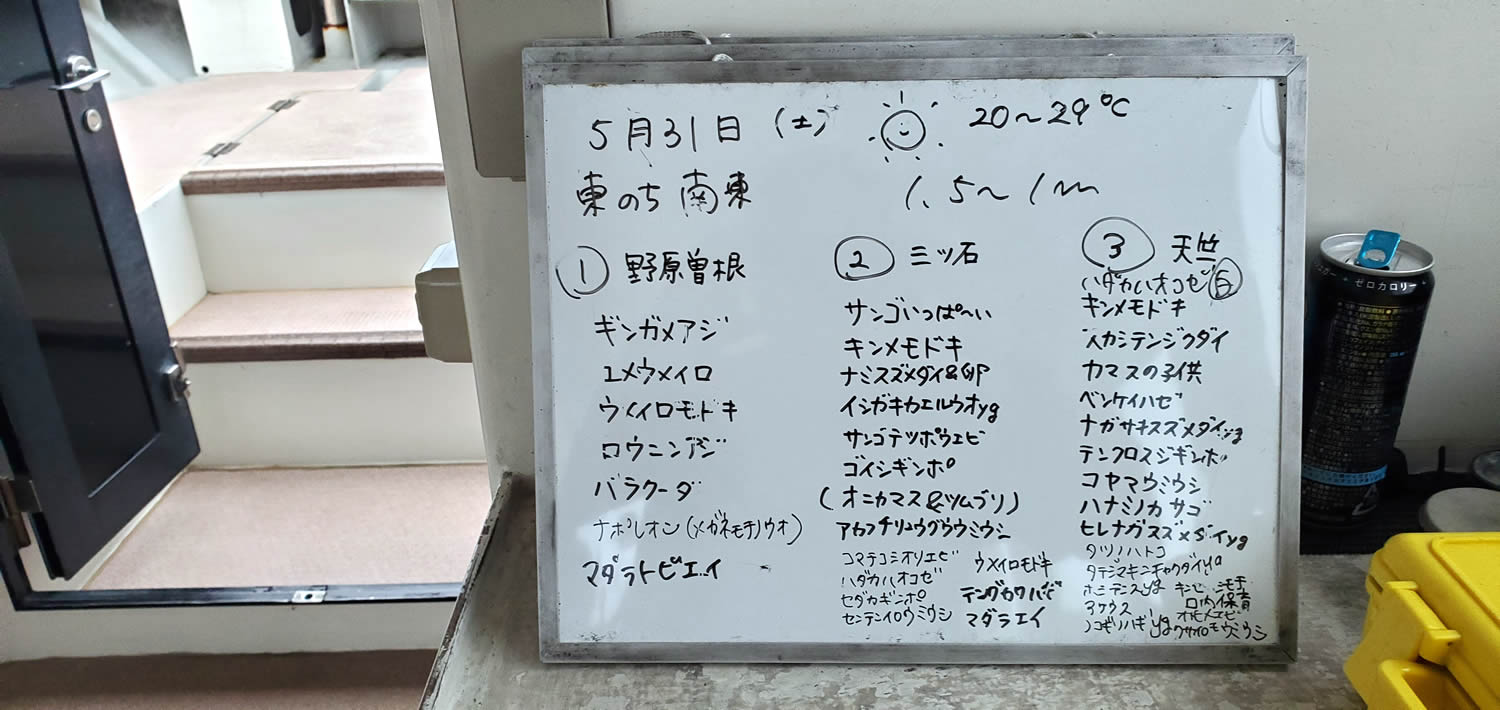 5月31日 (土) 20～29℃
東のち南東 1.5～1m
① 野原曽根
ギンガメアジ
ユメウメイロ
ウメイロモドキ
ロウニンアジ
バラクーダ
ナポレオン(メガネモチノウオ)
マダラトビエイ
② 三ツ石
サンゴいっぱ～い
キンメモドキ
ナミスズメダイ&卵
イシガキカエルウオyg
サンゴテッポウエビ
ゴイシギンポ
(オニカマス&ツムブリ)
アカフチリュウグウウミウシ
コマチコシオリエビ
ハダカハオコゼ
セダカギンポ
センテンイロウミウシ
ウメイロモドキ
テングカワハギ
マダラエイ
③ 天竺
ハダカハオコゼ 白
キンメモドキ
スカシテンジクダイ
カマスの子供
ベンケイハゼ
ナガサキスズメダイyg
テンクロスジギンポ
コヤマウミウシ
ハナミノカサゴ
ヒレナガスズメダイyg
タツノハトコ
タテジマキンチャクダイyg
ホシテンスyg
アケウス
ノコギリハギyg
口内保育
オトヒメエビ
クサイロモウミウシ
ゼロカロリー